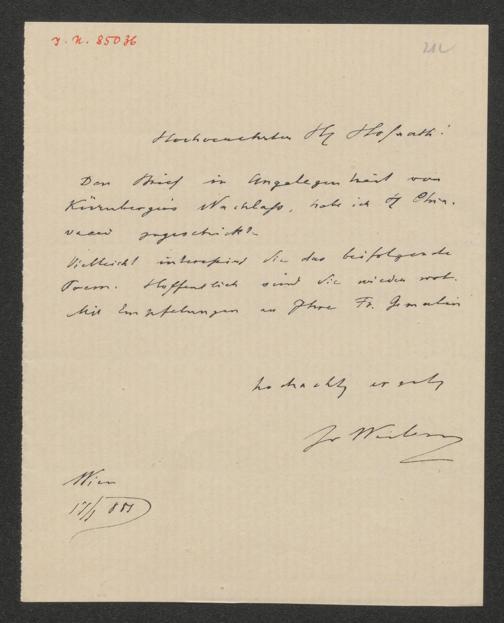 J. N. 85036
212
Hochverehrter Hr Hofrath!
Den Brief in Angelegenheit von
Kürnbergers Nachlaß, habe ich H Chia-
vacci zugeschickt.
Vielleicht interessirt Sie das beifolgende
Poem. Hoffentlich sind Sie wieder wol.
Mit Empfelungen an Ihre Fr. Gemalin
hochachtg ergeb
Wien
17/